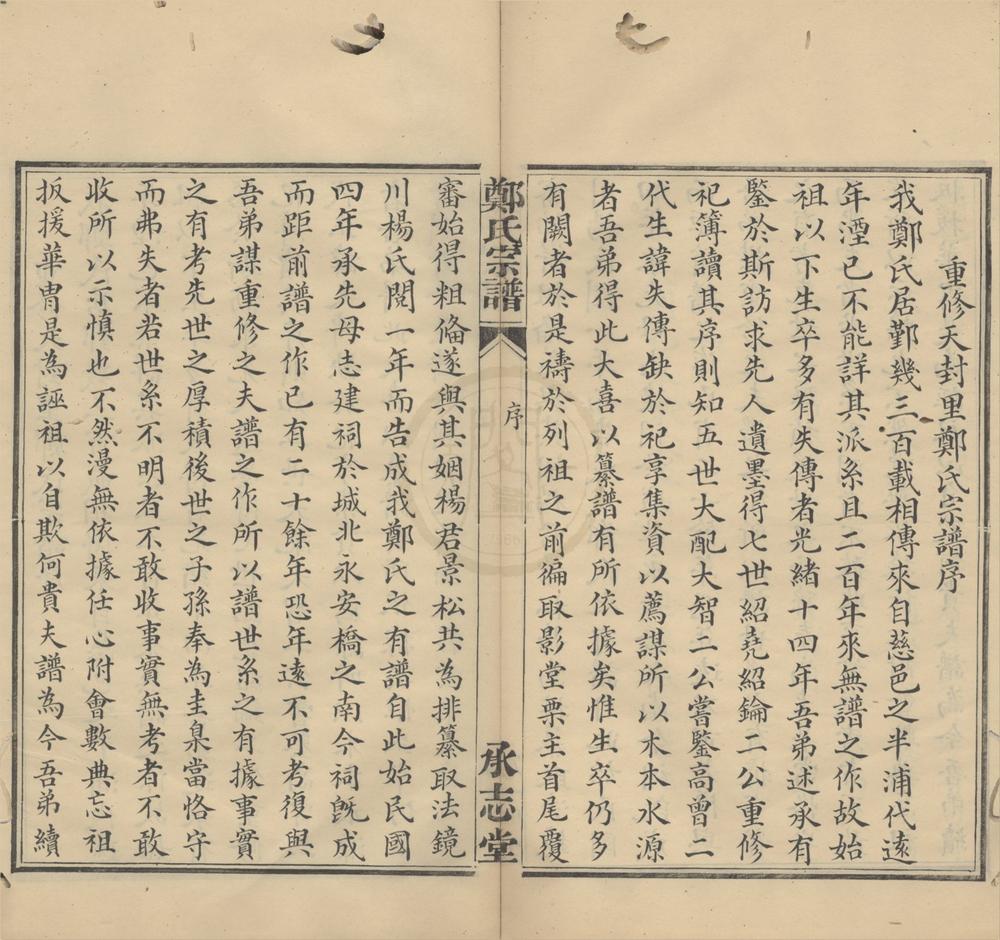 重修天封里鄭氏宗譜序
我鄭氏居鄞幾三百載相傳來自慈邑之半浦代遠
年湮已不能詳其派系且二百年來無譜之作故始
祖以下生卒多有失傳者光緒十四年吾弟述承有
鑒於斯訪求先人遺墨得七世紹堯紹鑰二公重修
祀簿讀其序則知五世大配大智二公嘗鑒高曾二
代生諱失傳缺於祀享集資以薦謀所以木本水源
者吾弟得此大喜以纂譜有所依據矣惟生卒仍多
有闕者於是禱於列祖之前徧取影堂栗主首尾覆
鄭氏宗譜
序
承志堂
審始得粗偹遂與其姻楊君景松共為排纂取法鏡
川楊氏閱一年而告成我鄭氏之有譜自此始民國
四年承先母志建祠於城北永安橋之南今祠旣成
而距前譜之作已有二十餘年恐年遠不可考復與
吾弟謀重修之夫譜之作所以譜世系之有據事實
之有考先世之厚積後世之子孫奉為圭臬當恪守
而弗失者若世系不明者不敢收事實無考者不敢
收所以示慎也不然漫無依據任心附會數典忘祖
扳援華胄是為誣祖以自欺何貴夫譜為今吾弟續